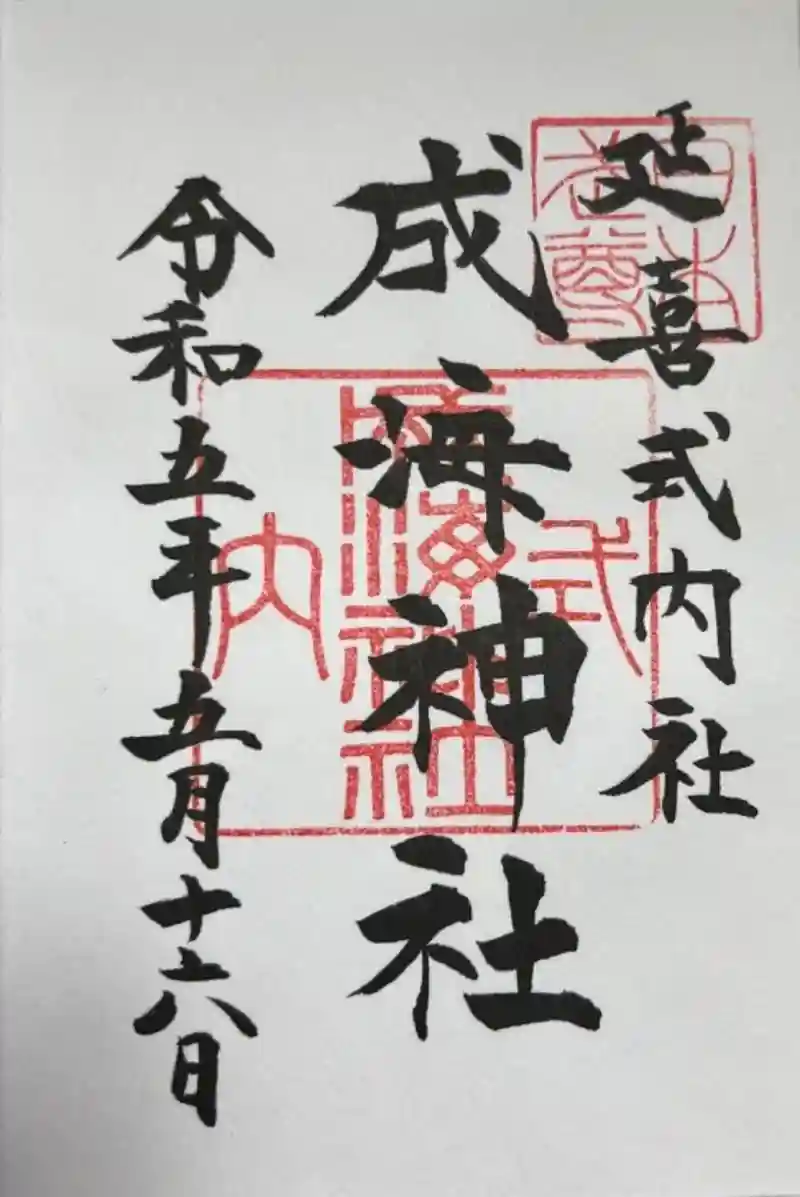 延喜式内社
成海神社
令和五年五月十六日
式
成海神社
内
日本
武尊